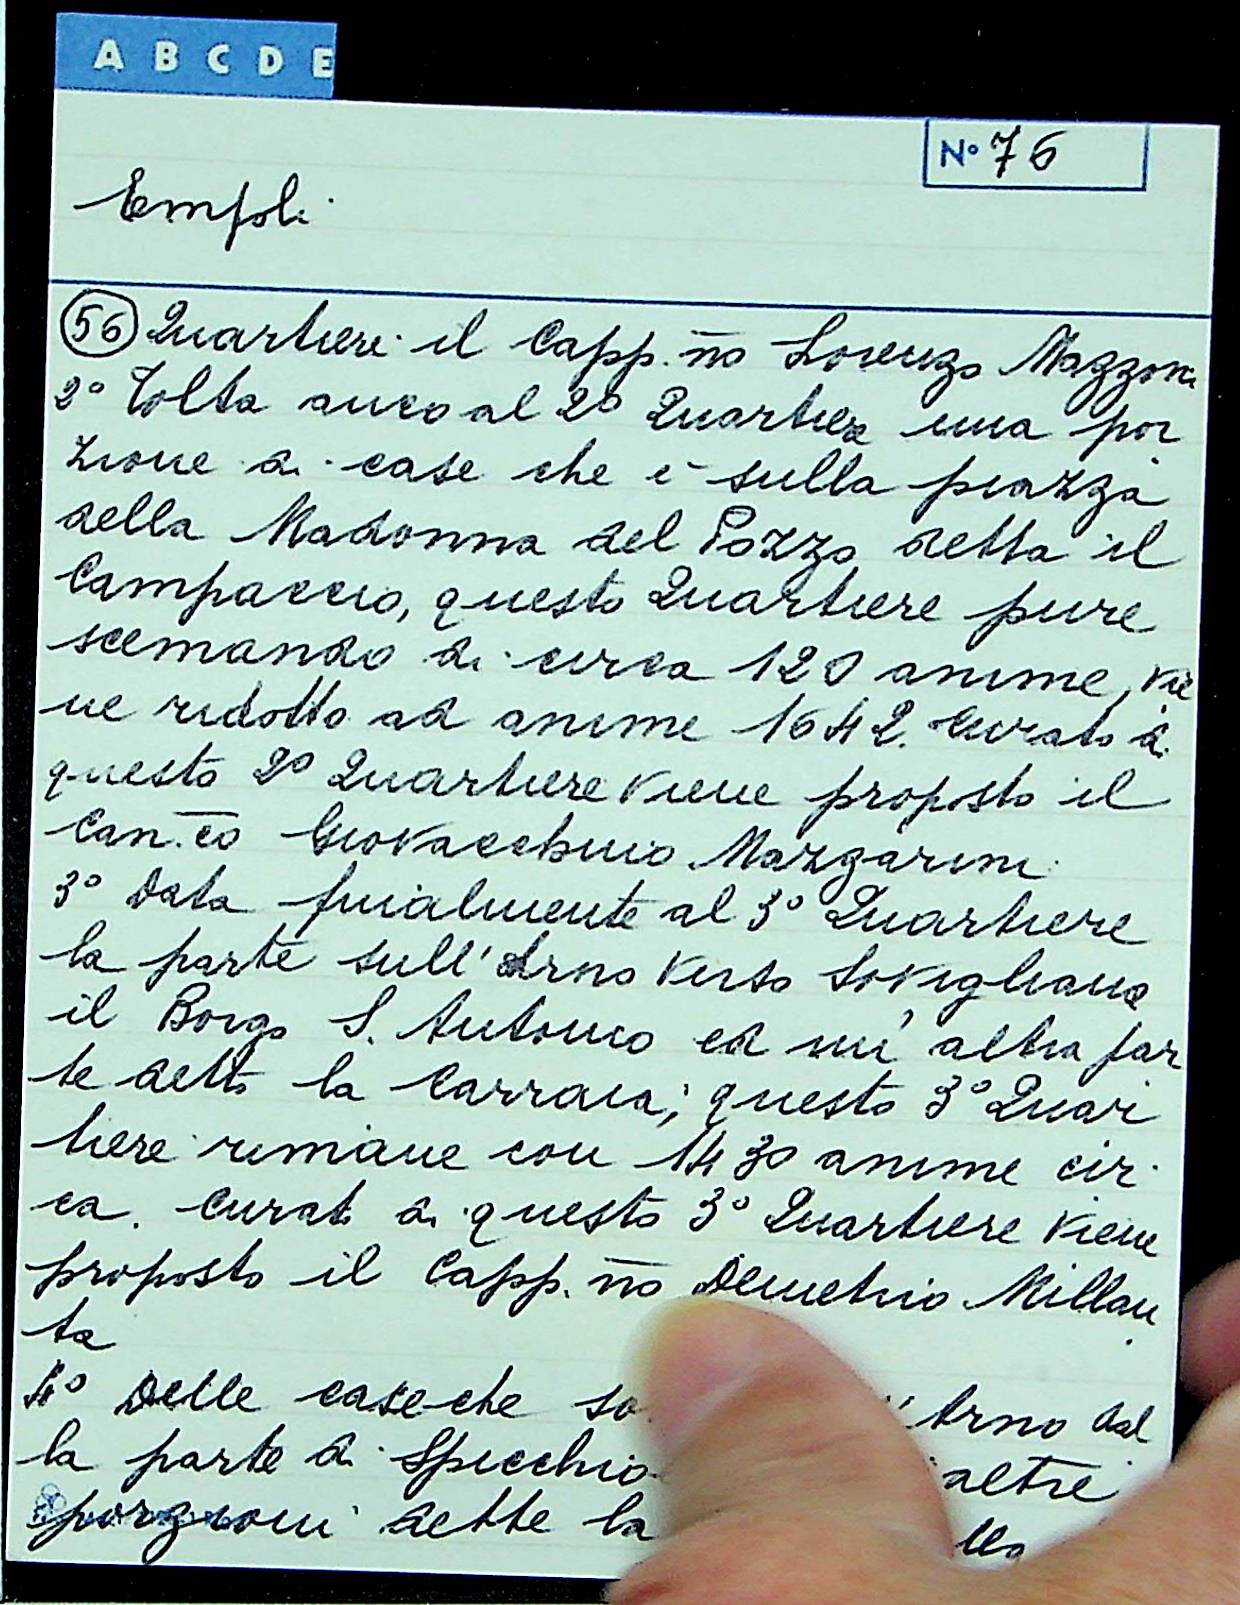 A B C D E
N° 76
Empoli
56 Quartiere il Capp.no Lorenzo Mazzoni
2° Tolta anco al 2° Quartiere una por
zione di case che è sulla piazza
della Madonna del Pozzo detta il
Campaccio, questo Quartiere pure
scemando di circa 120 anime, vie
ne ridotto ad anime 1642. Curato di
questo 2° Quartiere viene proposto il
Can.co Giovacchino Mazzarini
3° Data finalmente al 3° Quartiere
la parte sull'Arno verso Sovigliana
il Borgo S. Antonio ed un'altra par
te detto la Carraia; questo 3° Quar
tiere rimane con 1430 anime cir
ca. Curato di questo 3° Quartiere viene
proposto il Capp.no Demetrio Millan
ta
4° Delle case che Arno dal
la parte di Spicchio altre
porzioni dette la